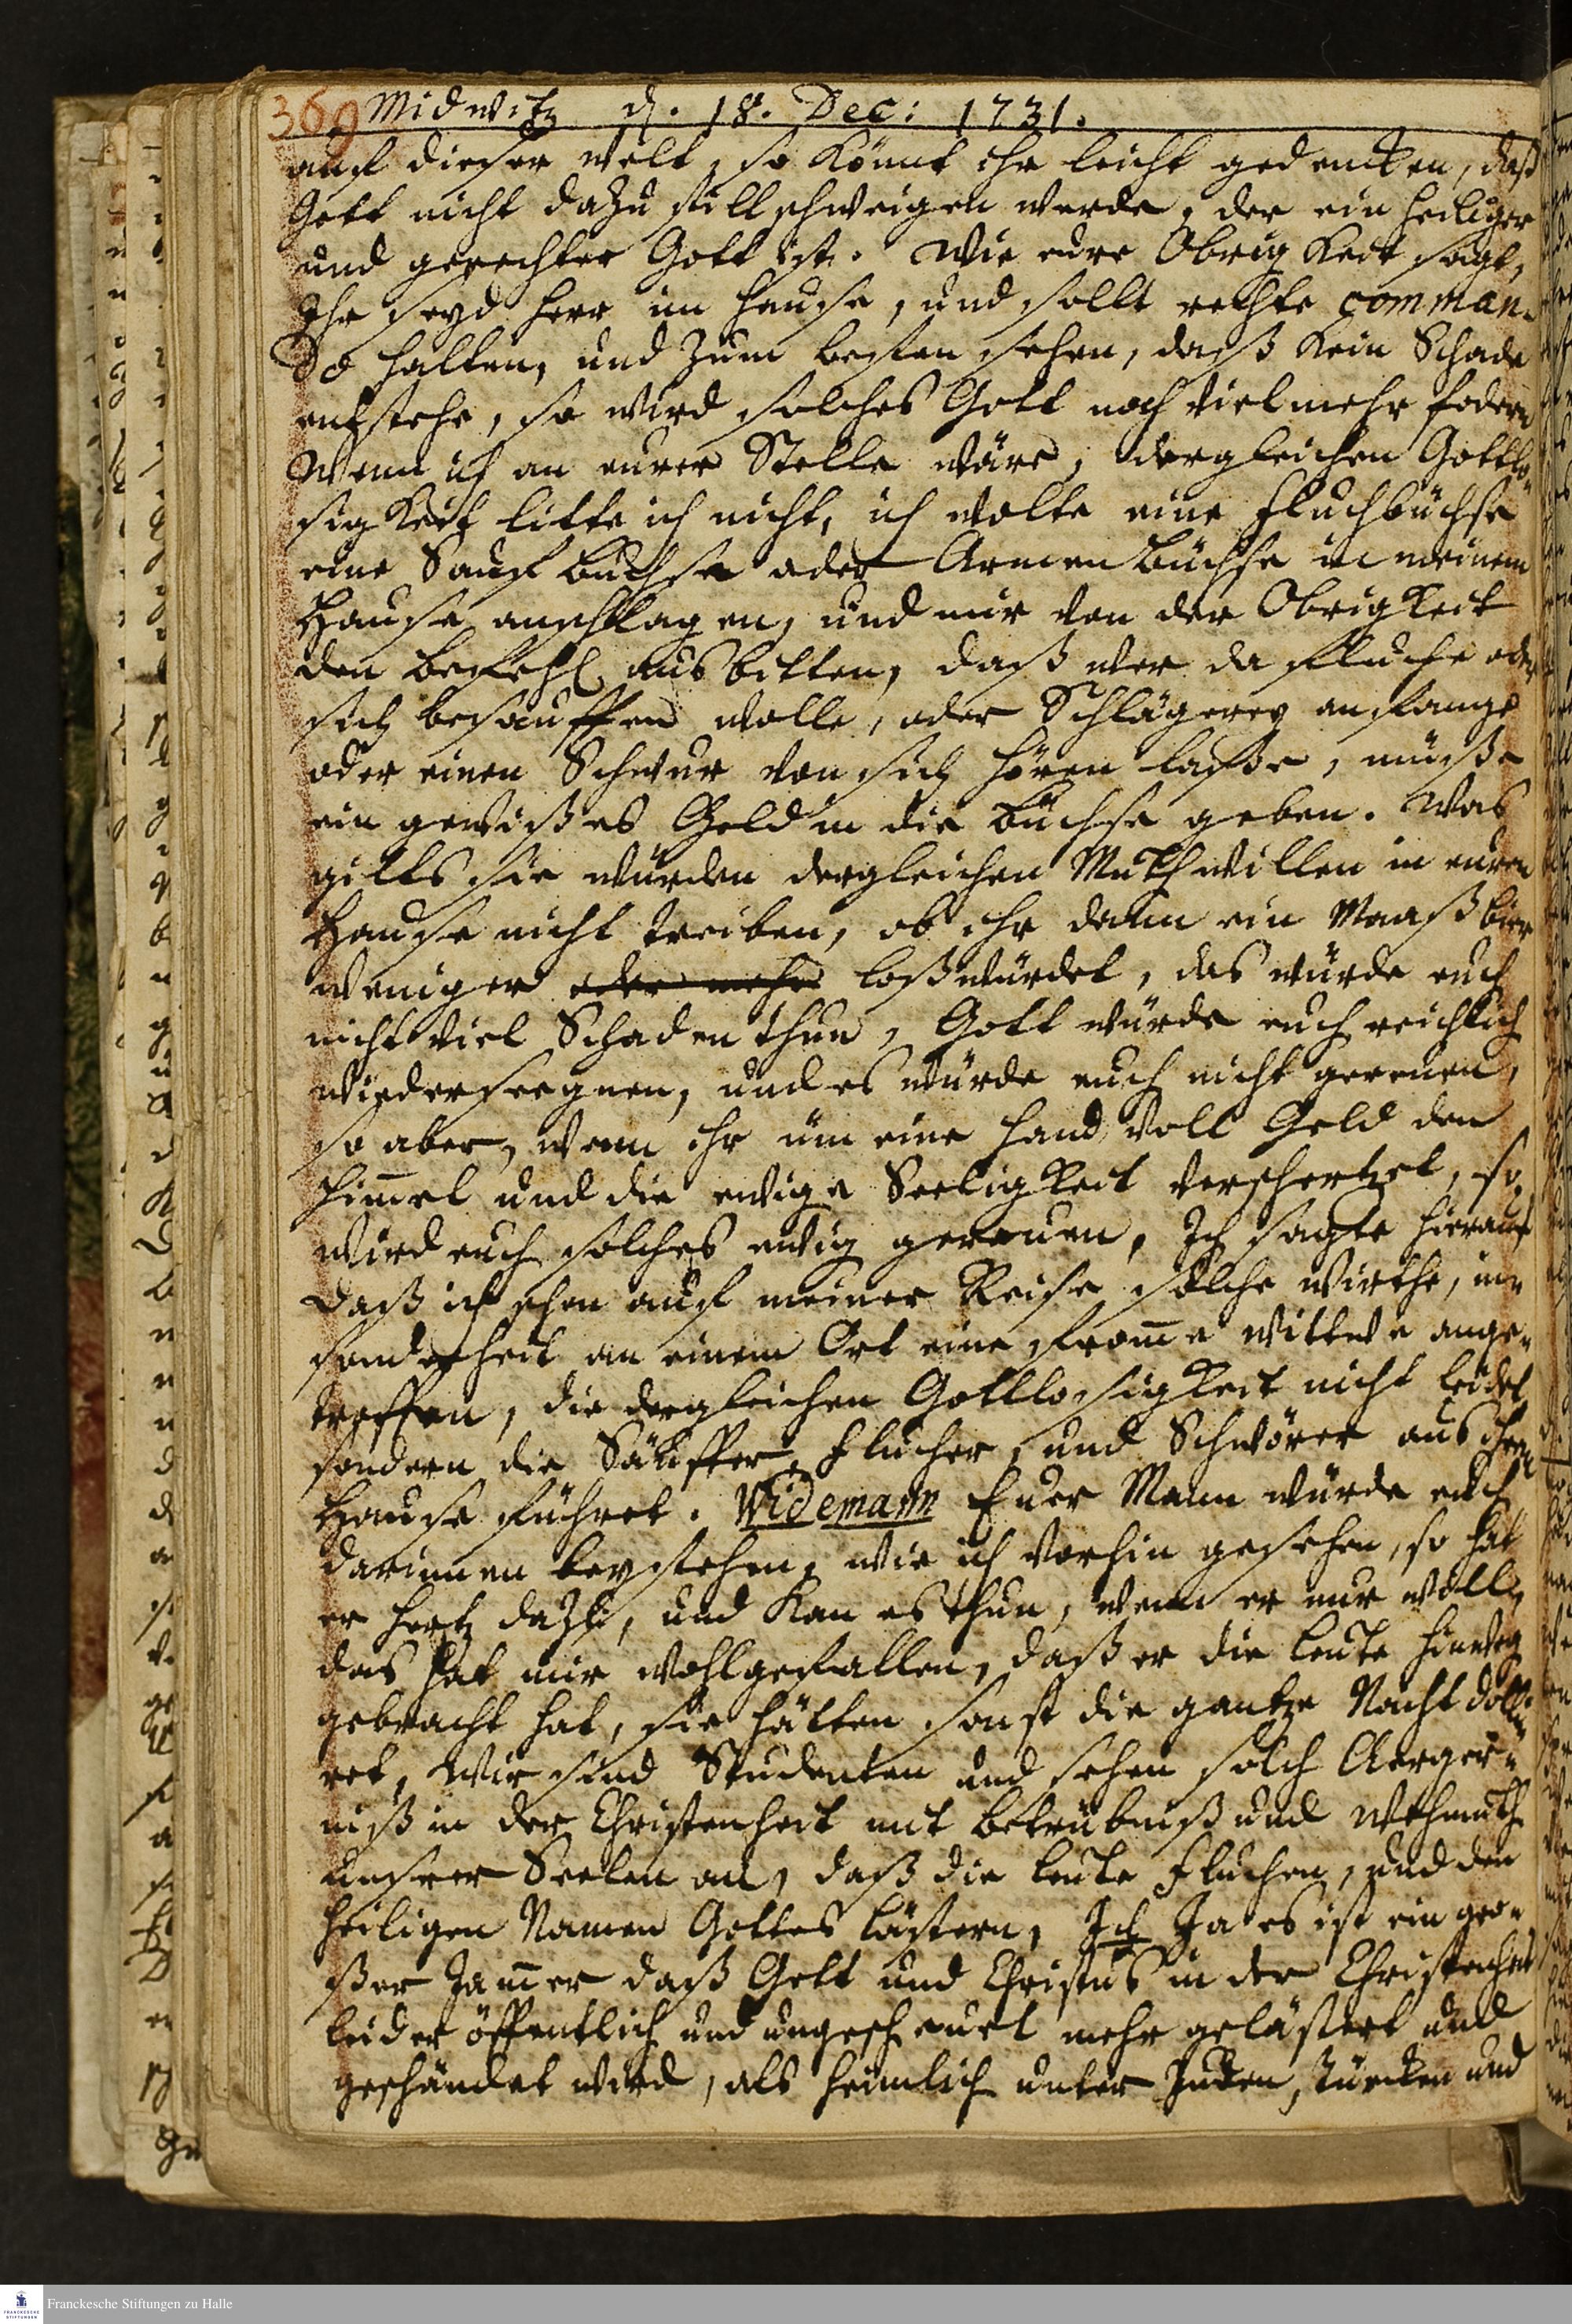 369 Midwitz d. 18. Dec: 1731.
auf dieser welt, so könnt ihr leicht gedencken, daß
Gott nicht dazu stillschweigen werde, der ein heiliger
und gerechter Gott ist. Wie eure Obrigkeit sagt,
Ihr seyd herr im hause, und sollt rechte comman-
do halten, und zum besten sehen, daß kein Schade
entstehe, so wird solches Gott noch vielmehr fodern
Wenn ich an eurer Stelle wäre, dergleichen Gottlo-
sigkeit litte ich nicht, ich wolte eine fluchbüchse
eine Sauf büchse oder Armen büchse in meinem
Hause anschlagen, und mir von der Obrigkeit
den befehl ausbitten, daß wer da fluche oder
sich besauffen wolle, oder Schlägerey anfange
oder einen Schwur von sich hören laße, müße
ein gewißes Geld in die büchse geben. Was
gilts sie würden dergleichen Muthwillen in euren
Hause nicht treiben, ob ihr dann ein Maaß bier
weniger oder mehr loßwürdet, das würde euch
nicht viel Schaden thun, Gott würde euch reichlich
wiederseegnen, und es würde euch nicht gereuen,
so aber, wenn ihr üm eine hand voll Geld den
Himel und die ewige Seeligkeit verschertzet, so
wird euch solches ewig gereuen, Ich sagte hierauf
daß ich schon auf meiner Reise solche wirthe, in-
sonderheit an einem Ort eine frome wittwe ange-
troffen, die dergleichen Gottlosigkeit nicht leidet
sondern die Säuffer, flucher, und Schwörer aus ihrem
Hause führet. Widemann Euer Mann würde euch
darinnen beystehen, wie ich vorhin gesehen, so hat
er hertz dazu, und kan es thun, wenn er nur woll,
das hat mir wohlgefallen, daß er die leute hinweg
gebracht hat, sie hätten sonst die gantze Nacht dolli-
ret, Wir sind Studenten und sehen solch Aerger-
niß in der Christenheit mit betrübniß und Wehmuth
unserer Seelen an, daß die leute fluchen, und den
heiligen Namen Gottes lästern, Ich Ja es ist ein gro-
ßer Jamer daß Gott und Christus in der Christenheit
leider öffentlich und ungescheuet mehr gelästert und
geschändet wird, als heimlich unter Juden, Türcken und
Franckesche Stiftungen zu Halle